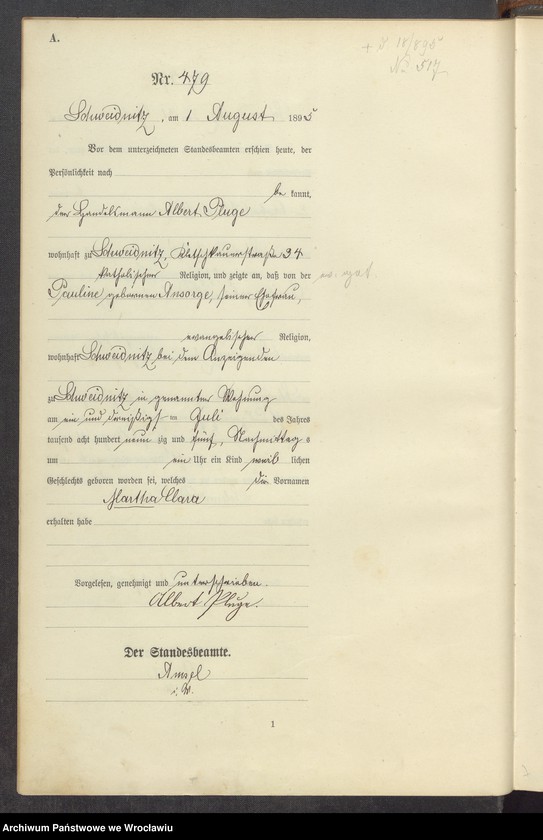 A.
+ 8/8 1895
No 517
Nr. 479
Schweidnitz, am 1 August 1895
Vor dem unterzeichneten Standesbeamten erschien heute, der
Persönlichkeit nach
be kannt,
der Handelsmann Albert Pluge
wohnhaft zu Schweidnitz, Kletschkauerstraße 34
katholischer Religion, und zeigte an, daß von der
Pauline geborenen Ansorge, seiner Ehefrau,
evangelischer Religion,
wohnhaft Schweidnitz, bei dem Anzeigenden
zu Schweidnitz in genannter Wohnung
am ein und dreißigst en Juli des Jahres
tausend acht hundert neun zig und fünf, Nachmittag s
um ein Uhr ein Kind weib lichen
Geschlechts geboren worden sei, welches die Vornamen
Martha Clara
erhalten habe
Vorgelesen, genehmigt und unterschrieben.
Albert Pluge.
Der Standesbeamte.
Amsel
i. V.
1
Archiwum Państwowe we Wrocławiu